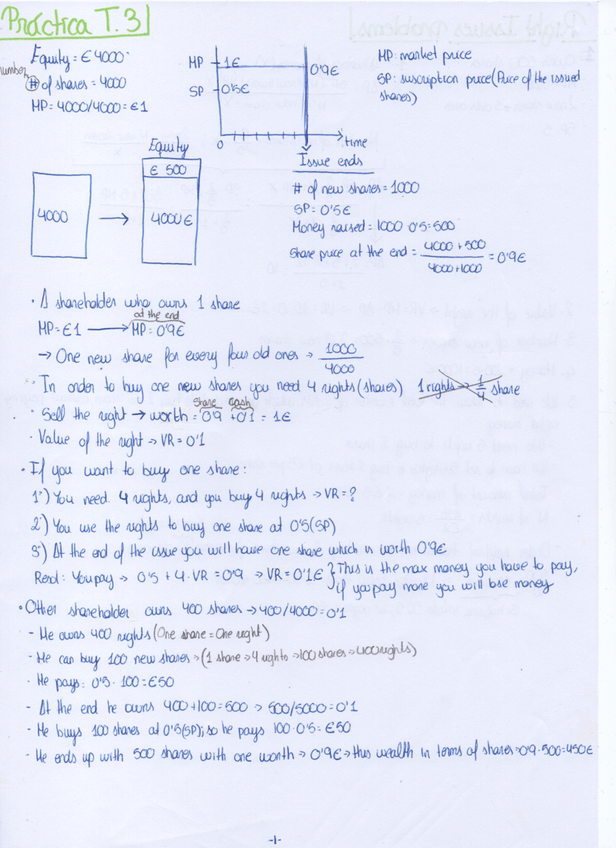 Práctica T.3
Equity = € 4000
number
# of shares = 4000
MP = 4000/4000 = €1
MP 1€
SP 0'5€
0'9€
0
time
Issue ends
MP: market price
SP: suscription price (Price of the issued
shares)
Equity
€ 500
4000
4000€
# of new shares = 1000
SP = 0'5€
Money raised = 1000·0'5 = 500
Share price at the end = 4000 + 500 / 4000 + 1000 = 0'9€
· A shareholder who owns 1 share
at the end
MP = €1 → MP = 0'9€
→ One new share for every four old ones → 1000 / 4000
· In order to buy one new shares you need 4 rights (shares) 1 rights → 1/4 share
share cash
· Sell the right → worth = 0'9 + 0'1 = 1€
· Value of the right → VR = 0'1
· If you want to buy one share:
1º) You need 4 rights, and you buy 4 rights → VR = ?
2º) You use the rights to buy one share at 0'5 (SP)
3º) At the end of the issue you will have one share which is worth 0'9€
Read: You pay → 0'5 + 4·VR = 0'9 → VR = 0'1€ } This is the max money you have to pay,
if you pay more you will lose money
· Other shareholder owns 400 shares → 400/4000 = 0'1
- He owns 400 rights (One share = One right)
- He can buy 100 new shares → (1 share → 4 rights → 100 shares → 400 rights)
- He pays: 0'5·100 = €50
- At the end he owns 400 + 100 = 500 → 500/5000 = 0'1
- He buys 100 shares at 0'5 (SP); so he pays 100·0'5 = €50
- He ends up with 500 shares with one worth → 0'9€ → this wealth in terms of shares → 0'9·500 = 450€
-1-